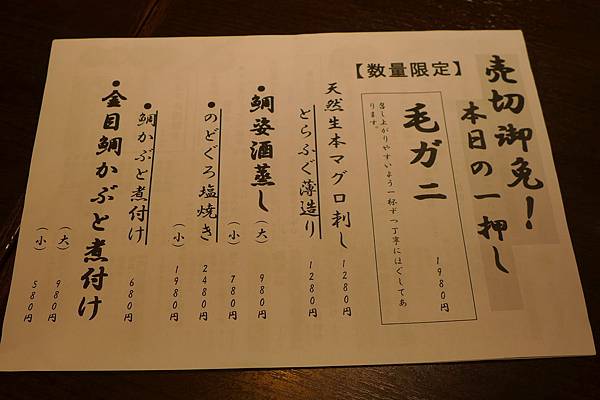 売切御免！
本日の一押し
【数量限定】
毛ガニ
召し上がりやすいよう一杯ずつ丁寧にほぐしてあ
ります。
1980円
天然生本マグロ刺し
1280円
とらふぐ薄造り
1280円
●鯛姿酒蒸し
（大） 980円
（小） 780円
●のどぐろ塩焼き
2480円
（小） 1980円
●鯛かぶと煮付け
680円
●金目鯛かぶと煮付け
（大） 980円
（小） 580円